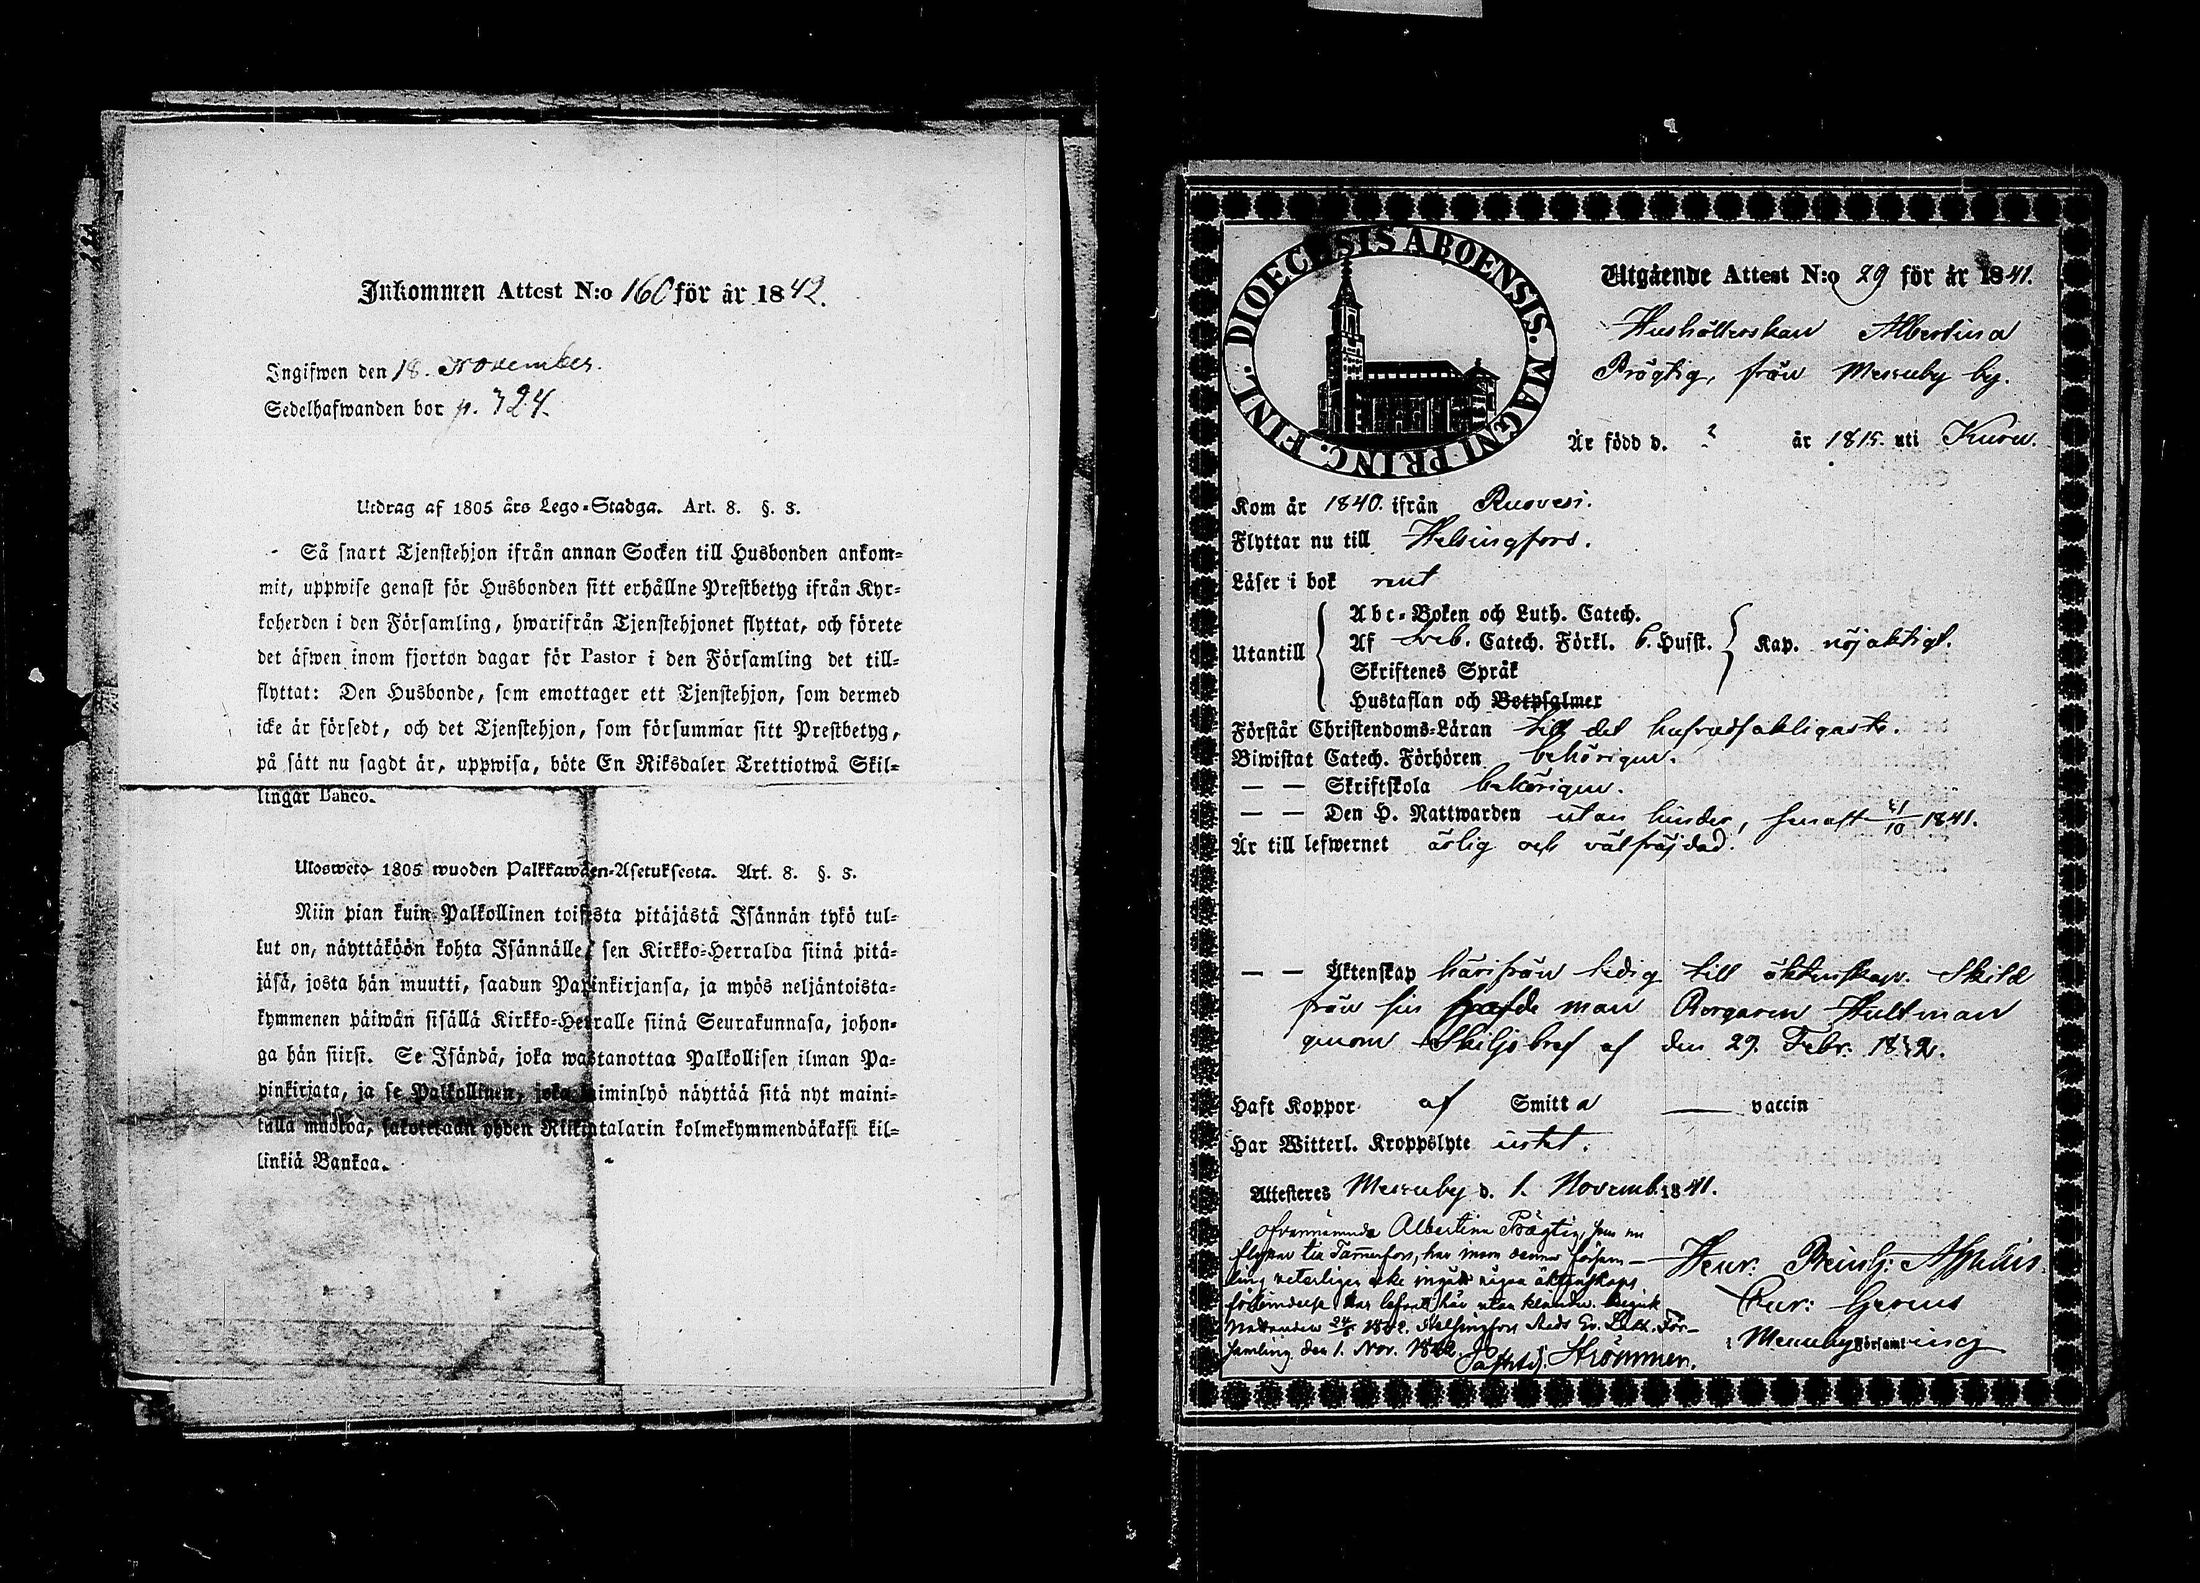 Inkommen Attest N:o 160 för år 1842.
Ingifwen den 18. November.
Sedelhafwanden bor p. 724.
Utdrag af 1805 års Lego-Stadga. Art. 8. §. 3.
Så snart Tjenstehjon ifrån annan Socken till Husbonden ankom-
mit, uppwise genast för Husbonden sitt erhållne Prestbetyg ifrån Kyr-
koherden i den Församling, hwarifrån Tjenstehjonet flyttat, och förete
det äfwen inom fjorton dagar för Pastor i den Församling det till-
flyttat: Den Husbonde, som emottager ett Tjenstehjon, som dermed
icke är försedt, och det Tjenstehjon, som försummar sitt Prestbetyg,
på sätt nu sagdt är, uppwisa, böte En Riksdaler Trettiotwå Skil-
lingar Banco.
Ulosweto 1805 wuoden Palkkawäen-Asetuksesta. Art. 8. §. 3.
Niin pian kuin Palkollinen toisesta pitäjästä Isännän tykö tul-
lut on, näyttäköön kohta Isännälle sen Kirkko-Herralda siinä pitä-
jäsä, josta hän muutti, saadun Papinkirjansa, ja myös neljäntoista-
kymmenen päiwän sisällä Kirkko-Herralle siinä Seurakunnasa, johon-
ga hän siirsi. Se Isändä, joka wastanottaa Palkollisen ilman Pa-
pinkirjata, ja se Palkollinen, joka laiminlyö näyttää sitä nyt maini-
tulla muokoa, sakotetaan yhden Riikintalarin kolmekymmendäkaksi kil-
linkiä Bankoa.
DIOECESIS ABOENSIS. MAGNI PRINC. FINL.
Utgående Attest N:o 29 för år 1841.
Hushållerskan Albertina
Prägtig, från Messuby by.
Är född d. ? år 1815. uti Kuru.
Kom år 1840. ifrån Ruovesi.
Flyttar nu till Helsingfors.
Läser i bok rent
Utantill
Abc-Boken och Luth. Catech.
Af Sveb. Catech. Förkl. b. Husst. Kap. nöjaktigt.
Skriftenes Språk
Hustaflan och Botpsalmer
Förstår Christendoms-Läran till det hufvudsakligaste.
Biwistat Catech. Förhören behörigen.
— — Skriftskola behörigen.
— — Den H. Nattwarden utan hinder, senast /10 1841.
Är till lefwernet ärlig och välfräjdad.
— — Äktenskap härifrån ledig till äktenskap. Skild
från sin hafde man Borgaren Hultman
genom Skiljobref af den 29. Febr. 1832.
Haft Koppor af Smitta — vaccin
Har Witterl. Kroppslyte intet.
Attesteres Messuby d. 1. Novemb. 1841.
Ofvannämnda Albertina Prägtig, som nu
flyttar till Tammerfors, har inom denna försam-
ling veterligen icke ingått någon äktenskaps
förbindelse har lefvat här utan klander. Begick
Nattvarden 1842. Helsingfors Stads Ev. Luth. För-
samling den 1. Nov. 1842. Strömmer.
Henr.
Cur: Gerens
i Messuby Församling